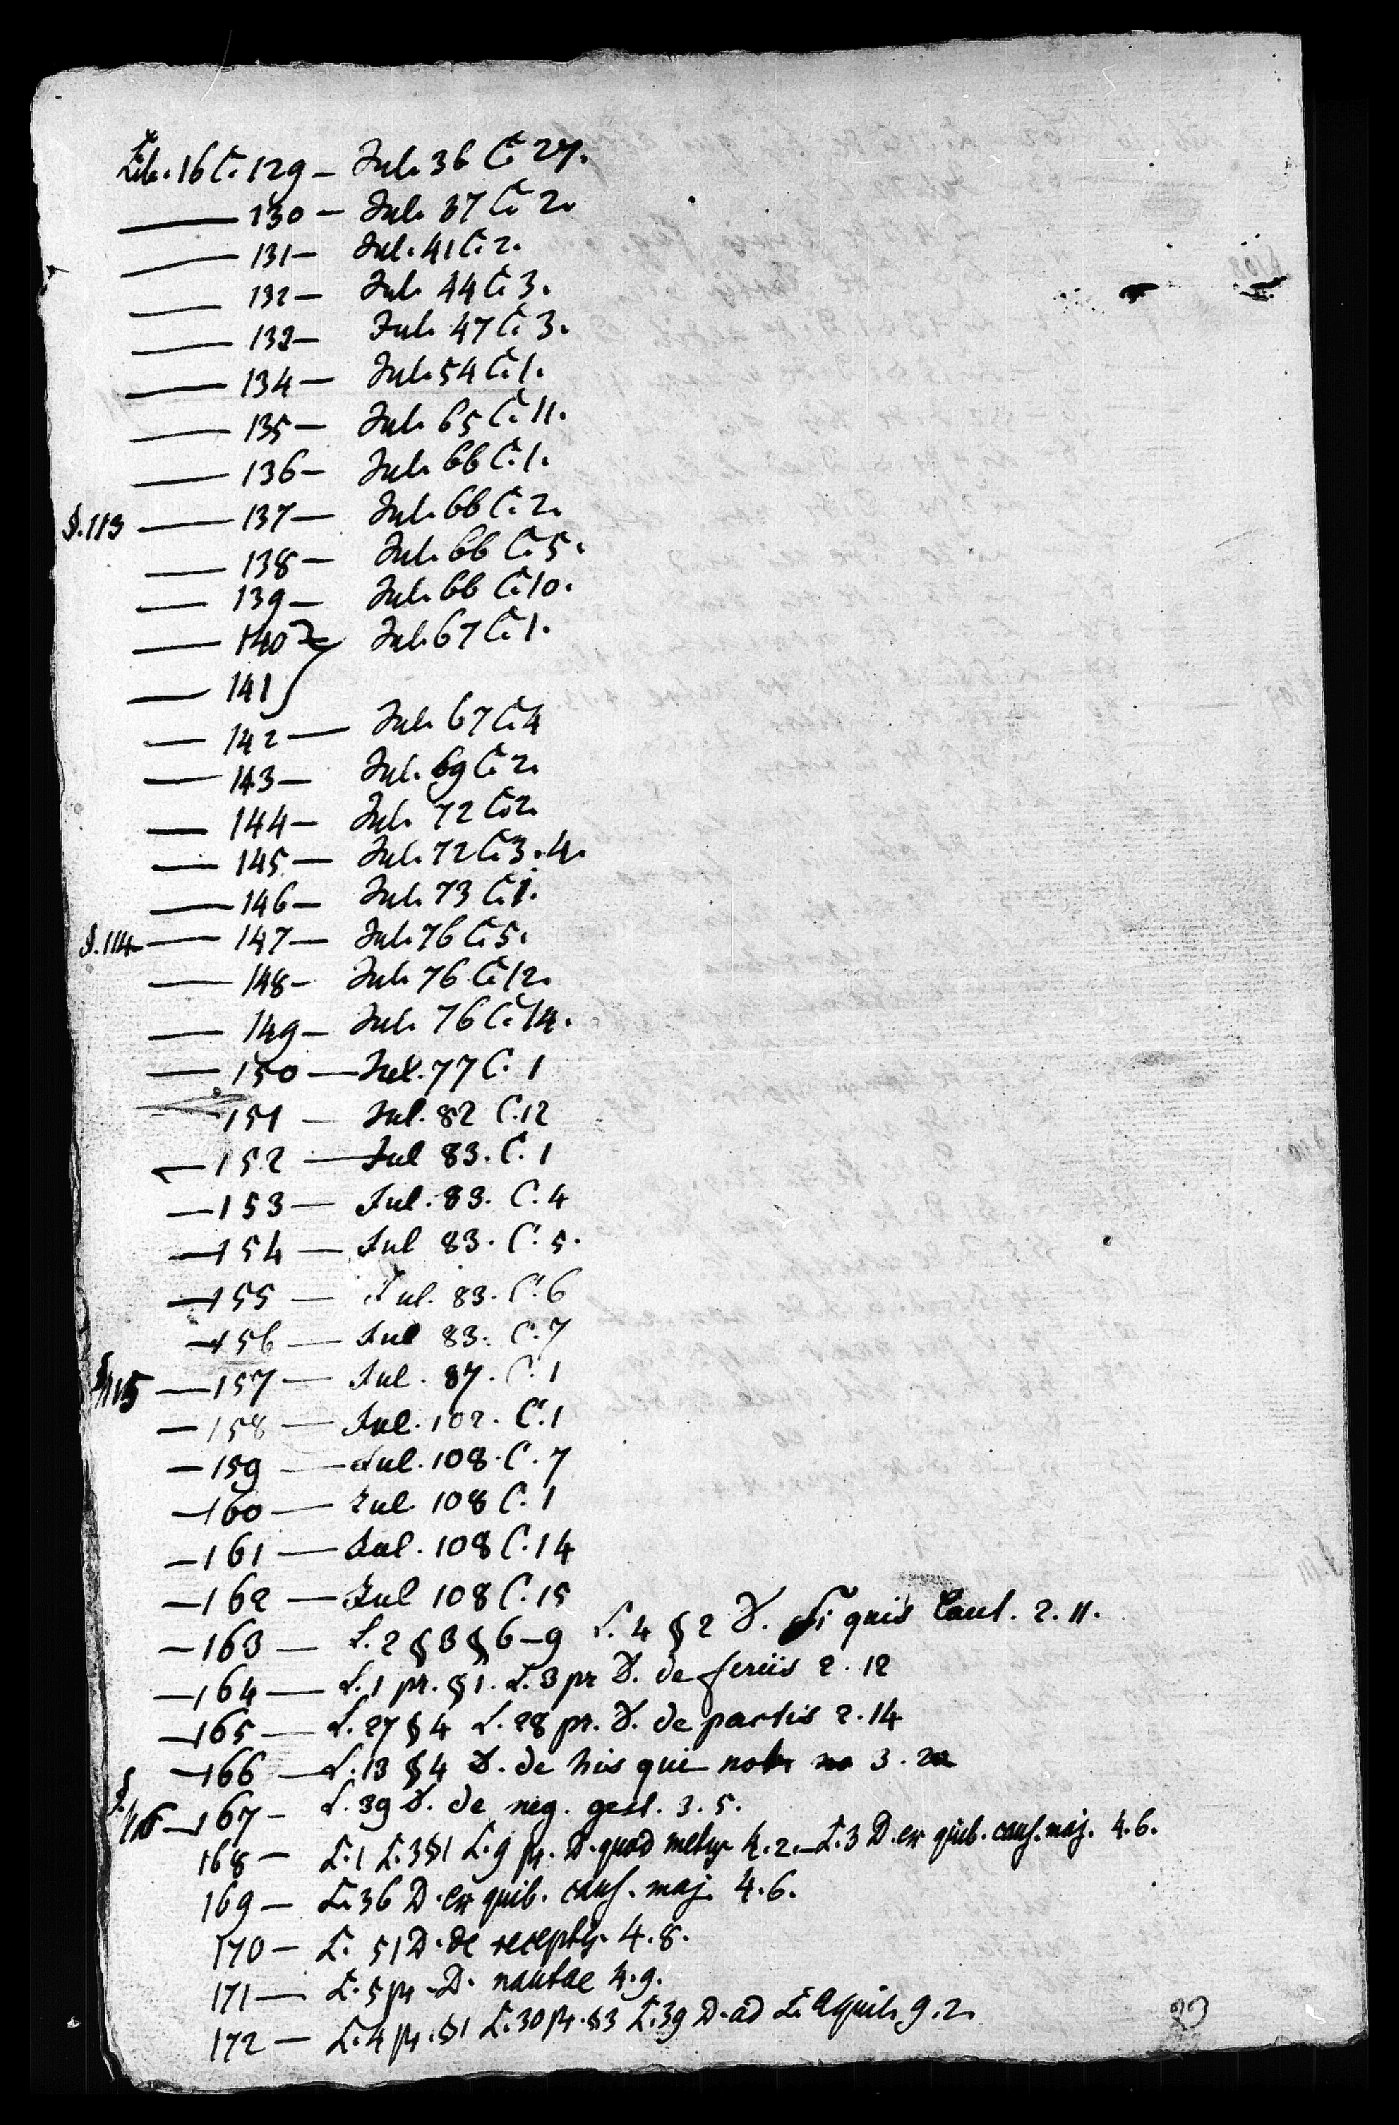 Lib. 16 C. 129 — Jul. 36 C. 27.
— 130 — Jul. 37 C. 2.
— 131 — Jul. 41 C. 2.
— 132 — Jul. 44 C. 3.
— 133 — Jul. 47 C. 3.
— 134 — Jul. 54 C. 1.
— 135 — Jul. 65 C. 11.
— 136 — Jul. 66 C. 1.
S. 113 — 137 — Jul. 66 C. 2.
— 138 — Jul. 66 C. 5.
— 139 — Jul. 66 C. 10.
— 140 } Jul. 67 C. 1.
— 141 }
— 142 — Jul. 67 C. 4
— 143 — Jul. 69 C. 2.
— 144 — Jul. 72 C. 2.
— 145 — Jul. 72 C. 3. 4.
— 146 — Jul. 73 C. 1.
S. 114 — 147 — Jul. 76 C. 5.
— 148 — Jul. 76 C. 12.
— 149 — Jul. 76 C. 14.
— 150 — Jul. 77 C. 1
151 — Jul. 82 C. 12
— 152 — Jul 83. C. 1
— 153 — Jul. 83. C. 4
— 154 — Jul 83. C. 5.
— 155 — Jul. 83. C. 6
— 156 — Jul 83. C. 7
S. 115 — 157 — Jul. 87. C. 1
— 158 — Jul. 102. C. 1
— 159 — Jul. 108. C. 7
— 160 — Jul 108 C. 1
— 161 — Jul. 108 C. 14
— 162 — Jul 108 C. 15
— 163 — L. 2 § 3 § 6–9 L. 4 § 2 D. Si quis Caut. 2. 11.
— 164 — L. 1 pr. § 1. L. 3 pr D. de feriis 2. 12
— 165 — L. 27 § 4 L. 28 pr. D. de pactis 2. 14
— 166 — L. 13 § 4 D. de his qui not 3. 2
S. 116 — 167 — L. 39 D. de neg. gest. 3. 5.
168 — L. 1 L. 3 § 1 L. 9 pr. D. quod metus 4. 2. — L. 3 D. ex quib. caus. maj. 4. 6.
169 — L. 36 D. ex quib. caus. maj. 4. 6.
170 — L. 51 D. de receptis 4. 8.
171 — L. 5 pr. D. nautae 4. 9.
172 — L. 4 pr. § 1 L. 30 pr. § 3 L. 39 D. ad L. Aquil. 9. 2.
23